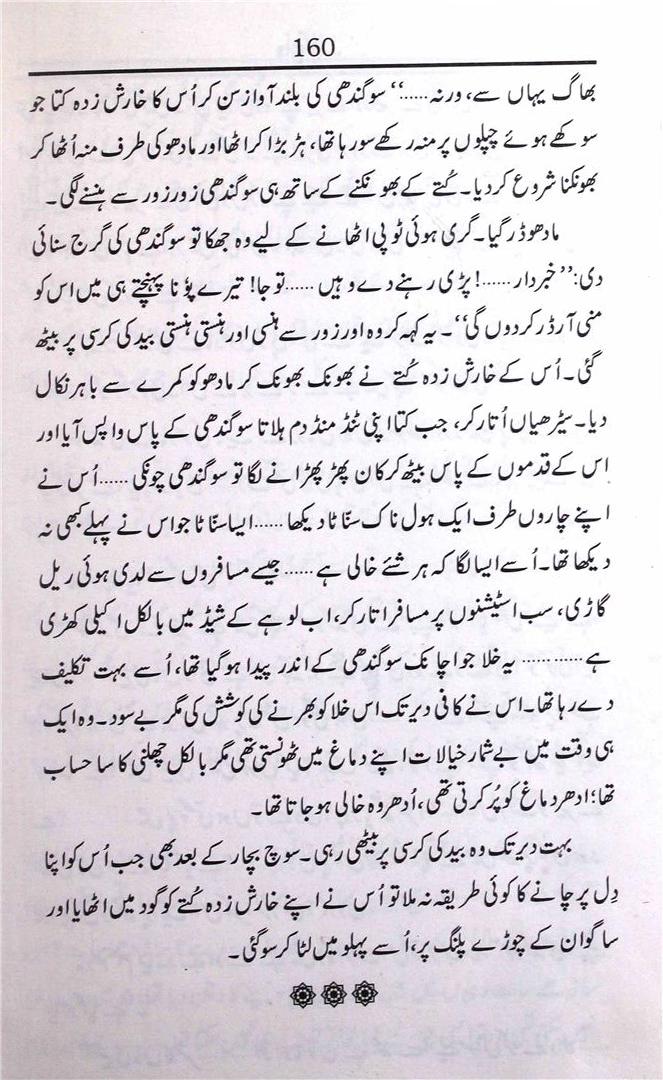 160
بھاگ یہاں سے، ورنہ.....‘‘ سوگندھی کی بلند آواز سن کر اُس کا خارش زدہ کتا جو
سوکھے ہوئے چپلوں پر منہ رکھے سو رہا تھا، ہڑبڑا کر اٹھا اور مادھو کی طرف منہ اُٹھا کر
بھونکنا شروع کردیا۔ کُتے کے بھونکنے کے ساتھ ہی سوگندھی زور زور سے ہنسنے لگی۔
مادھو ڈر گیا۔ گری ہوئی ٹوپی اٹھانے کے لیے وہ جھکا تو سوگندھی کی گرج سنائی
دی: ’’خبردار......! پڑی رہنے دے وہیں ......تو جا! تیرے پوُنا پہنچتے ہی میں اس کو
منی آرڈر کردوں گی‘‘۔ یہ کہہ کر وہ اور زور سے ہنسی اور ہنستی ہنستی بید کی کرسی پر بیٹھ
گئی۔ اُس کے خارش زدہ کُتے نے بھونک بھونک کر مادھو کو کمرے سے باہر نکال
دیا۔ سیڑھیاں اُتار کر، جب کتا اپنی ٹنڈ منڈ دم ہلاتا سوگندھی کے پاس واپس آیا اور
اس کے قدموں کے پاس بیٹھ کر کان پھڑپھڑانے لگا تو سوگندھی چونکی ......اُس نے
اپنے چاروں طرف ایک ہول ناک سنّاٹا دیکھا ......ایسا سنّاٹا جو اس نے پہلے کبھی نہ
دیکھا تھا۔ اُسے ایسا لگا کہ ہر شئے خالی ہے ...... جیسے مسافروں سے لدی ہوئی ریل
گاڑی، سب اسٹیشنوں پر مسافر اتار کر، اب لوہے کے شیڈ میں بالکل اکیلی کھڑی
ہے............ یہ خلا جو اچانک سوگندھی کے اندر پیدا ہوگیا تھا، اُسے بہت تکلیف
دے رہا تھا۔ اس نے کافی دیر تک اس خلا کو بھرنے کی کوشش کی مگر بے سود۔ وہ ایک
ہی وقت میں بے شمار خیالات اپنے دماغ میں ٹھونستی تھی مگر بالکل چھلنی کا سا حساب
تھا؛ ادھر دماغ کو پُر کرتی تھی، اُدھر وہ خالی ہوجاتا تھا۔
بہت دیر تک وہ بید کی کرسی پر بیٹھی رہی۔ سوچ بچار کے بعد بھی جب اُس کو اپنا
دِل پرچانے کا کوئی طریقہ نہ ملا تو اُس نے اپنے خارش زدہ کُتے کو گود میں اٹھایا اور
ساگوان کے چوڑے پلنگ پر، اُسے پہلو میں لٹا کر سوگئی۔